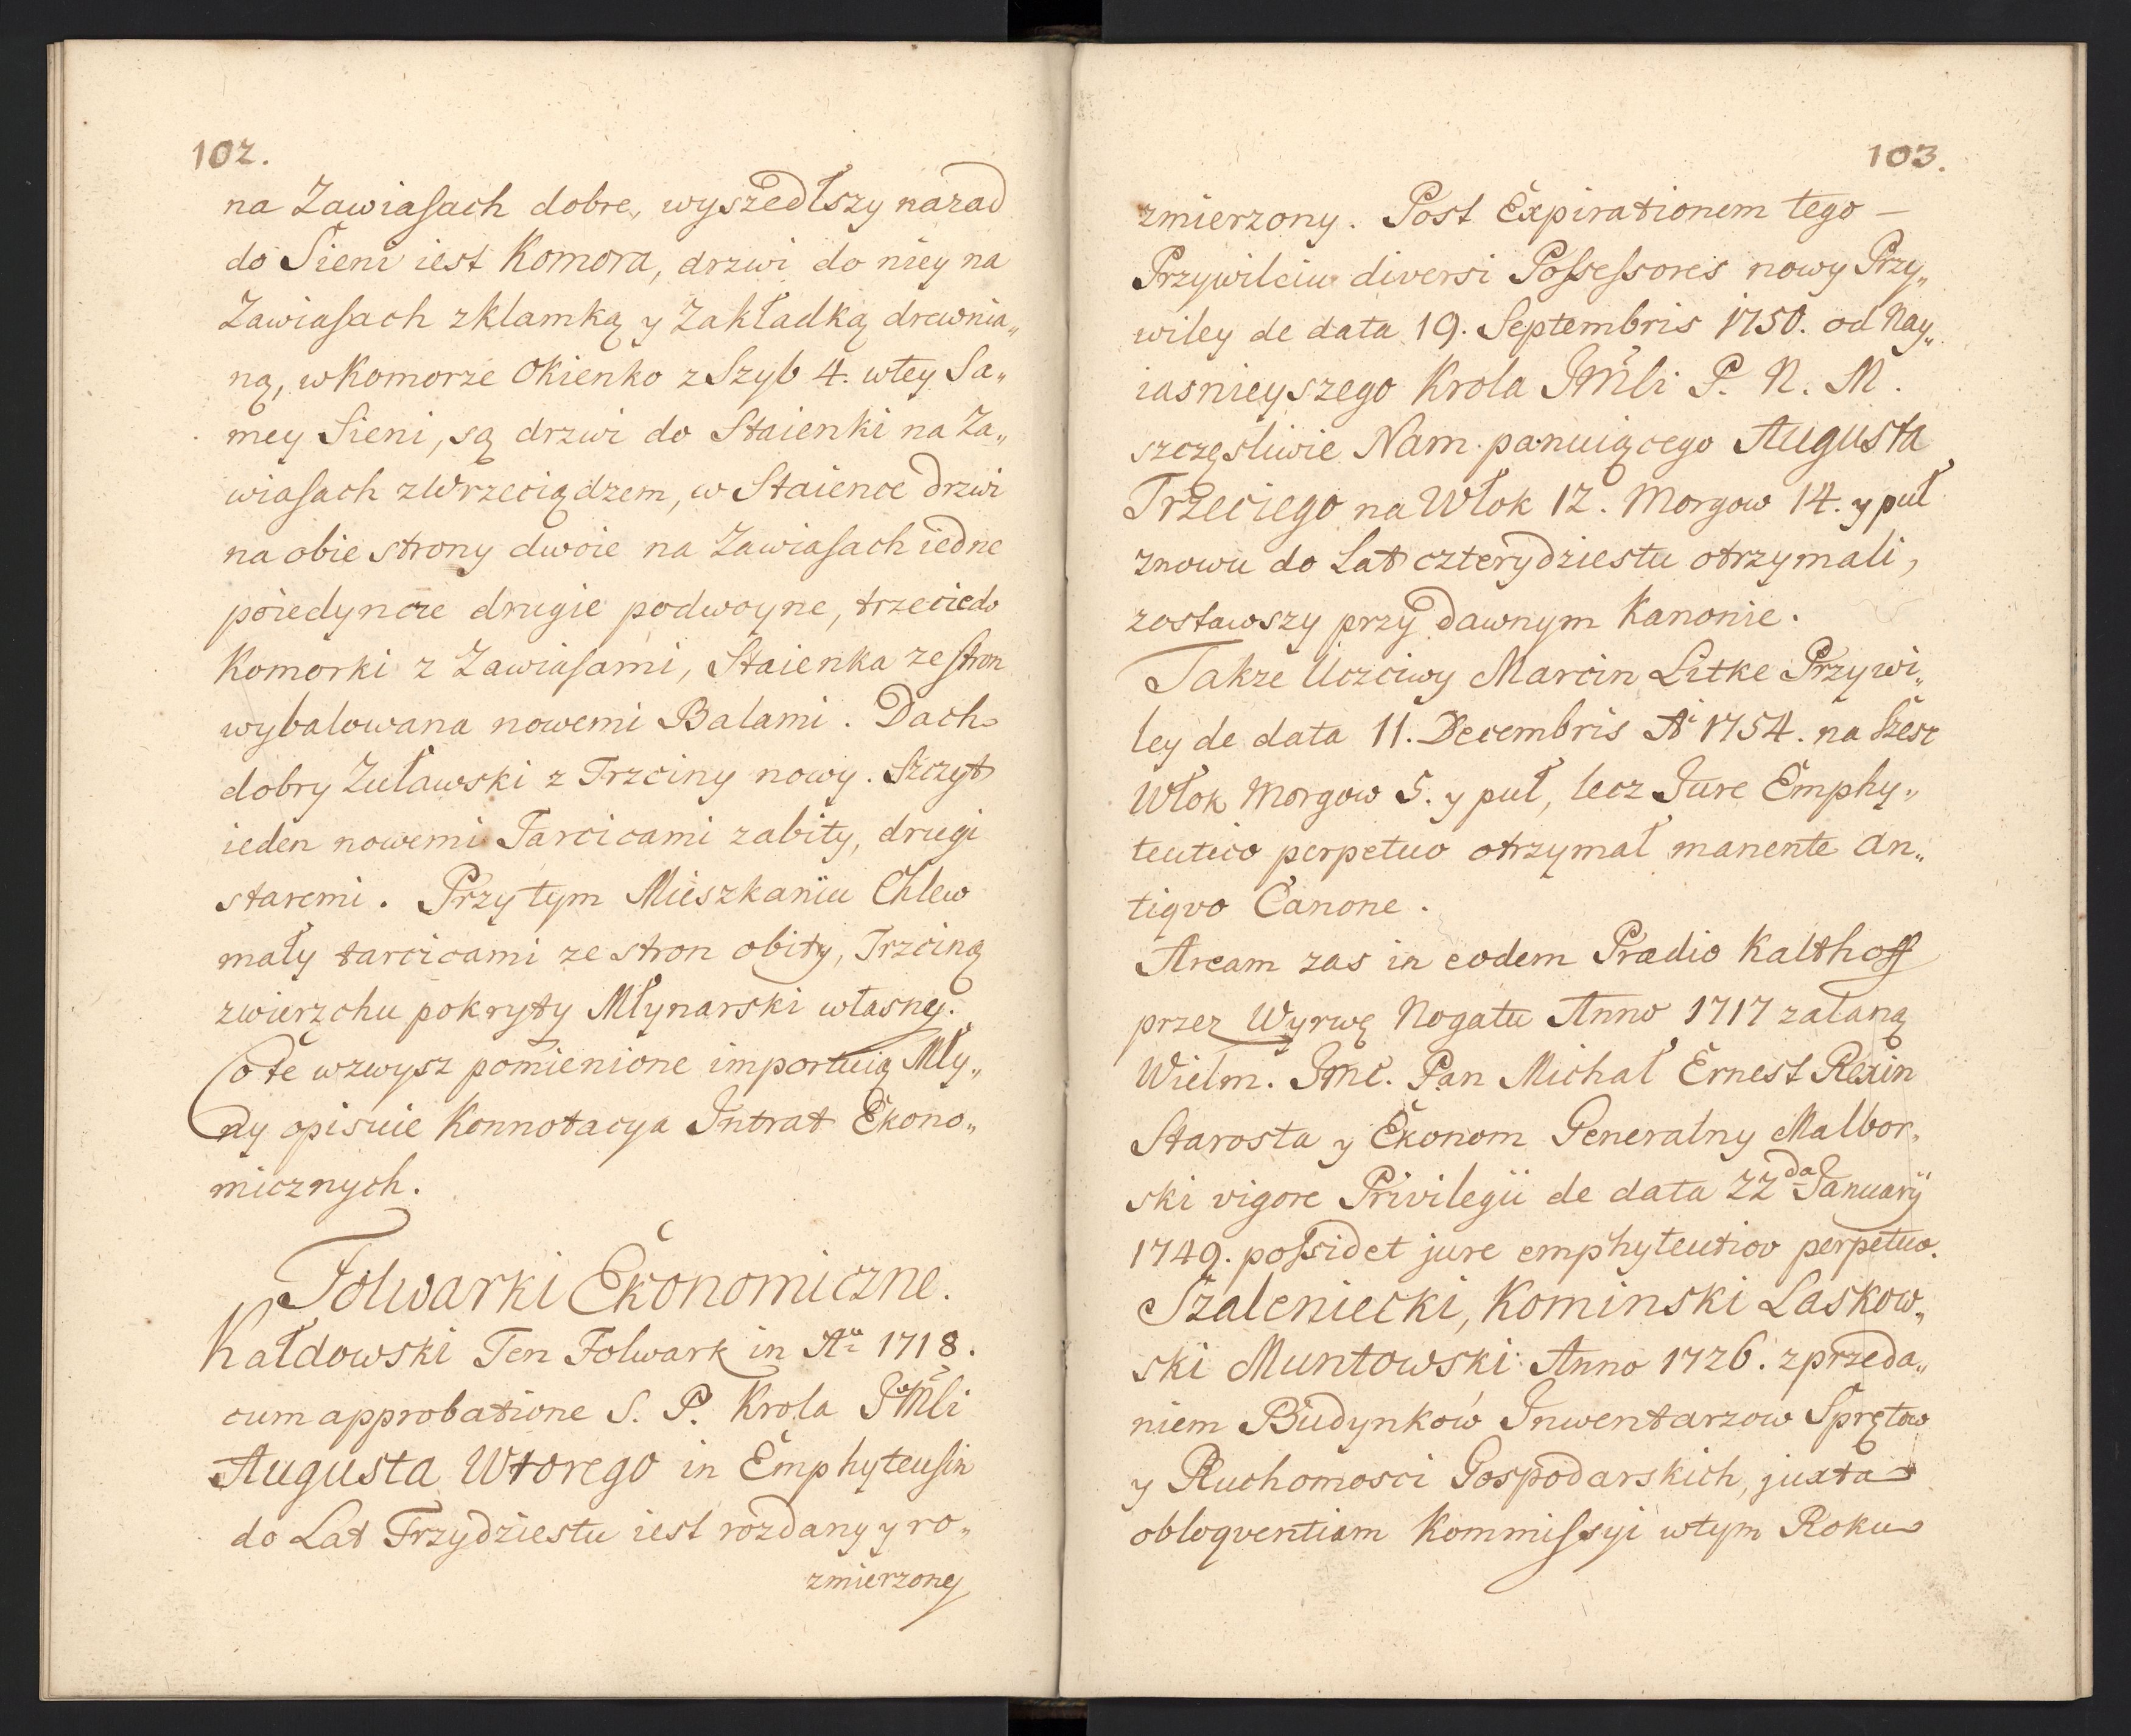 102.
na Zawiaſach dobre, wyszedłszy nazad
do Sieni iest Komora, drzwi do niey na
Zawiaſach z klamką y Zakładką drewnia„
ną, w Komorze Okienko z Szyb 4. wtey Sa„
mey Sieni, są drzwi do Staienki na Za„
wiaſach z Wrzeciądzem, w Staience drzwi
na obie strony dwoie na Zawiaſach iedne
poiedyncze drugie podwoyne, trzecie do
Komorki z Zawiaſami, Staienka ze ſtron
wybalowana nowemi Balami. Dach
dobry Zuławski z Trzciny nowy. Szczyt
ieden nowemi Tarcicami zabity, drugi
staremi. Przy tym Mieszkaniu Chlew
mały tarcicami ze stron obity, Trzciną
zwierzchu pokryty Młynarski własny.
Co te wzwysz pomienione importuią Mły„
ny opisuie Konnotacya Intrat Ekono„
micznych.
Folwarki Ekonomiczne.
Kałdowski Ten Folwark in Ao 1718.
cum approbatione S. P. Krola JMći
Augusta Wtorego in Emphyteuſin
do Lat Trzydziestu iest rozdany y ro„
zmierzony
103.
zmierzony. Post Expirationem tego –
Przywileiu diversi Poſseſsores nowy Przy„
wiley de data 19. Septembris 1750. od Nay„
iasnieyszego Krola JMći P. N. M.
szczęsliwie Nam panuiącego Augusta
Trzeciego na Włok 12. Morgow 14. y puł
znowu do Lat czterydziestu otrzymali,
zostawszy przy dawnym Kanonie.
Takze Uczciwy Marcin Litke Przywi„
ley de data 11. Decembris Ai 1754. na Szesc
Włok Morgow 5. y puł, lecz Jure Emphy„
teutico perpetuo otrzymał manente an„
tiqvo Canone.
Aream zas in eodem Prædio Kalthoff
przez Wyrwę Nogatu Anno 1717 zalaną
Wielm. Jmć. Pan Michał Ernest Rexin
Starosta y Ekonom Generalny Malbor„
ski vigore Privilegii de data 22da January
1749. poſsidet jure emphyteutico perpetuo.
Szaleniecki, Kominski Laskow„
ski Muntowski Anno 1726. z przeda„
niem Budynkow Inwentarzow Sprętow
y Ruchomosci Gospodarskich, juxta
obloqventiam Kommiſsyi wtym Roku